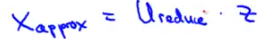 Xapprox = Ureduce · z